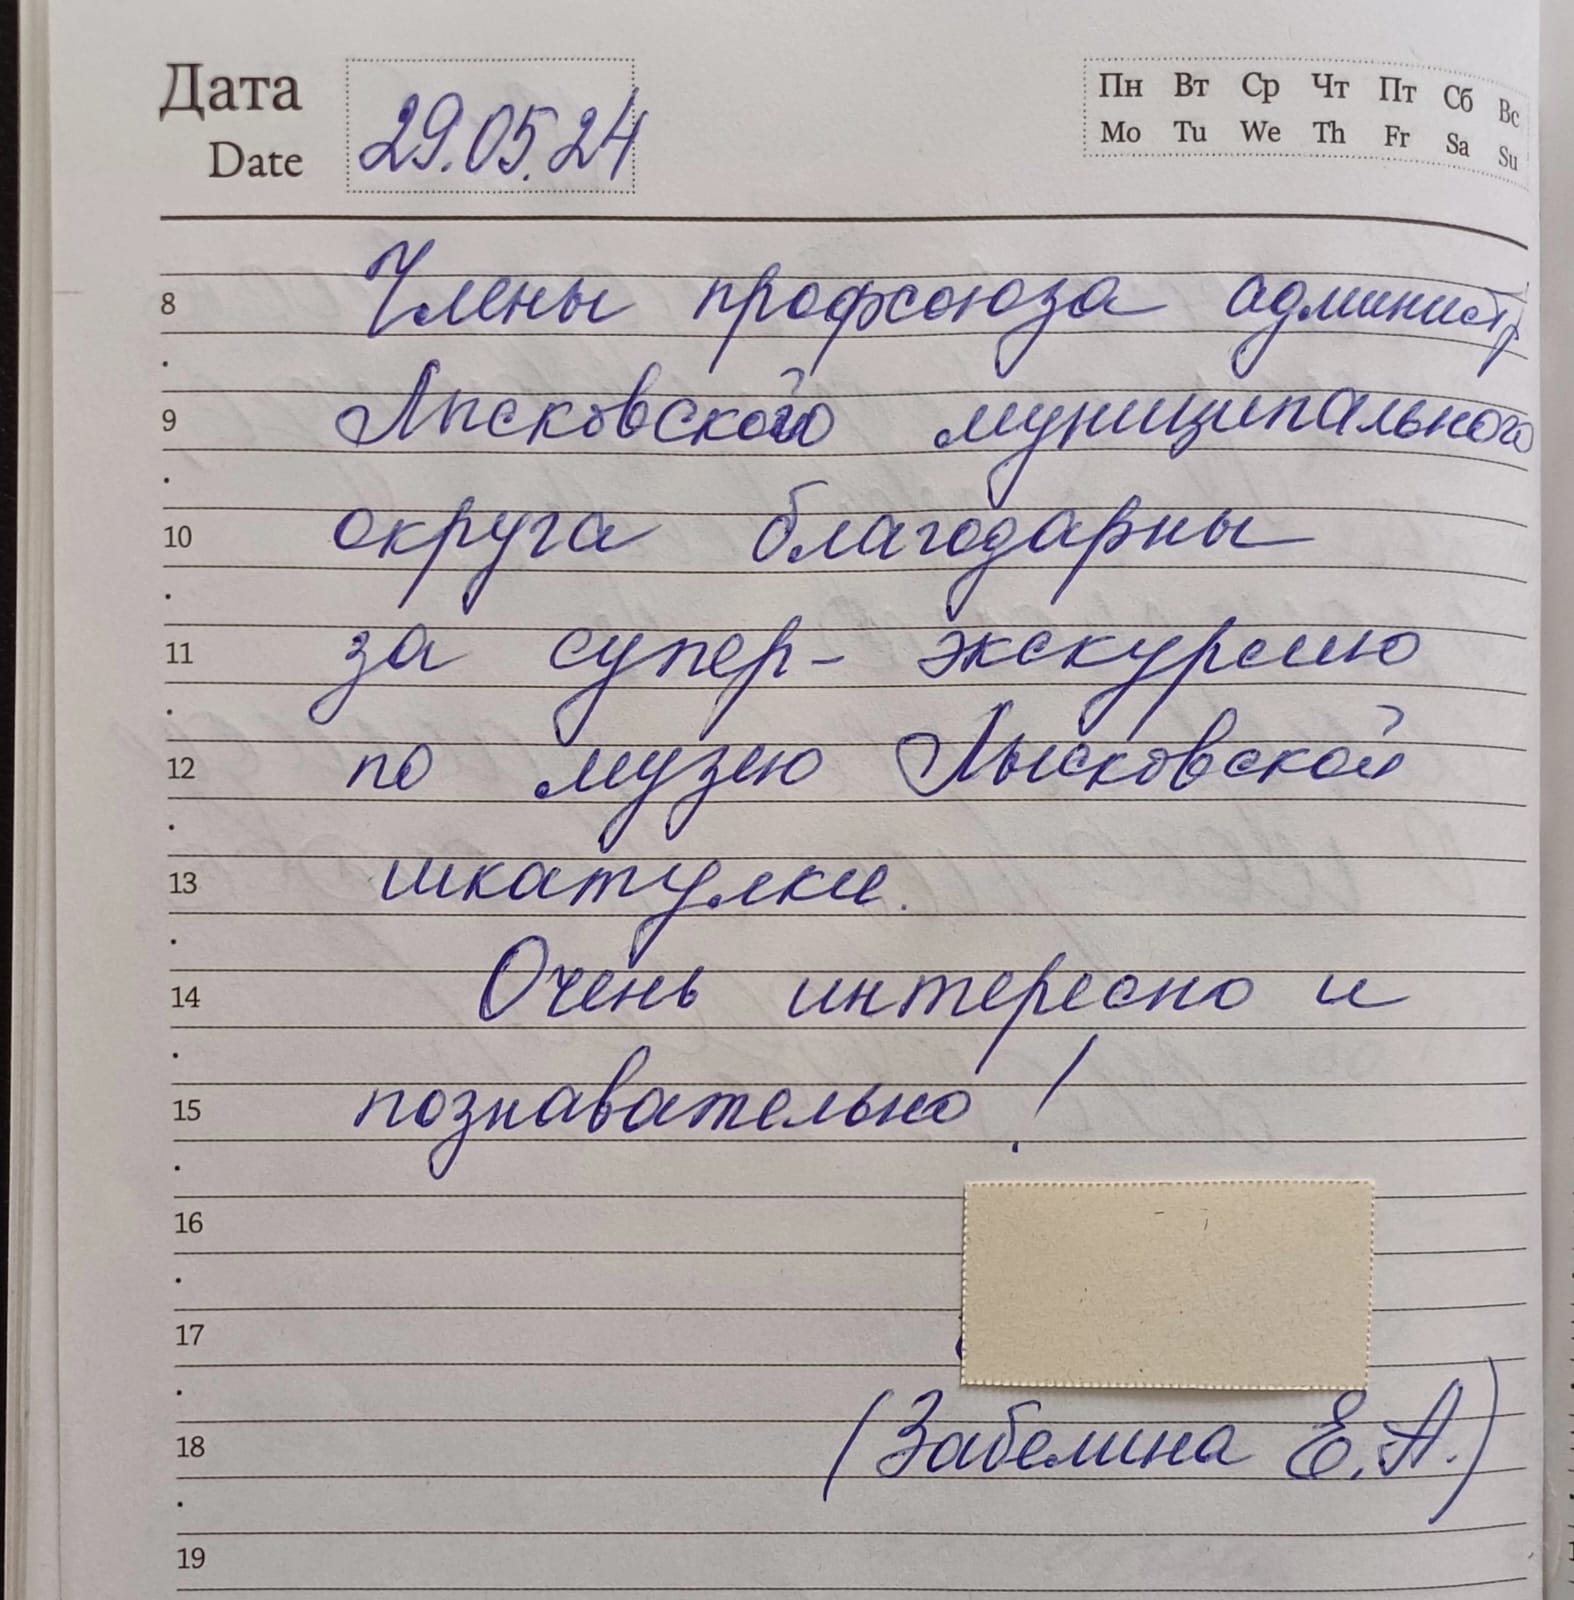 Дата
Date
29.05.24
Пн Вт Ср Чт Пт Сб Вс
Mo Tu We Th Fr Sa Su
8 Члены профсоюза администр
9 Лысковской муниципального
10 округа благодарны
11 за супер - экскурсию
12 по музею Лысковской
13 шкатулки.
14 Очень интересно и
15 познавательно!
16
17
18 (Забелина Е.А.)
19